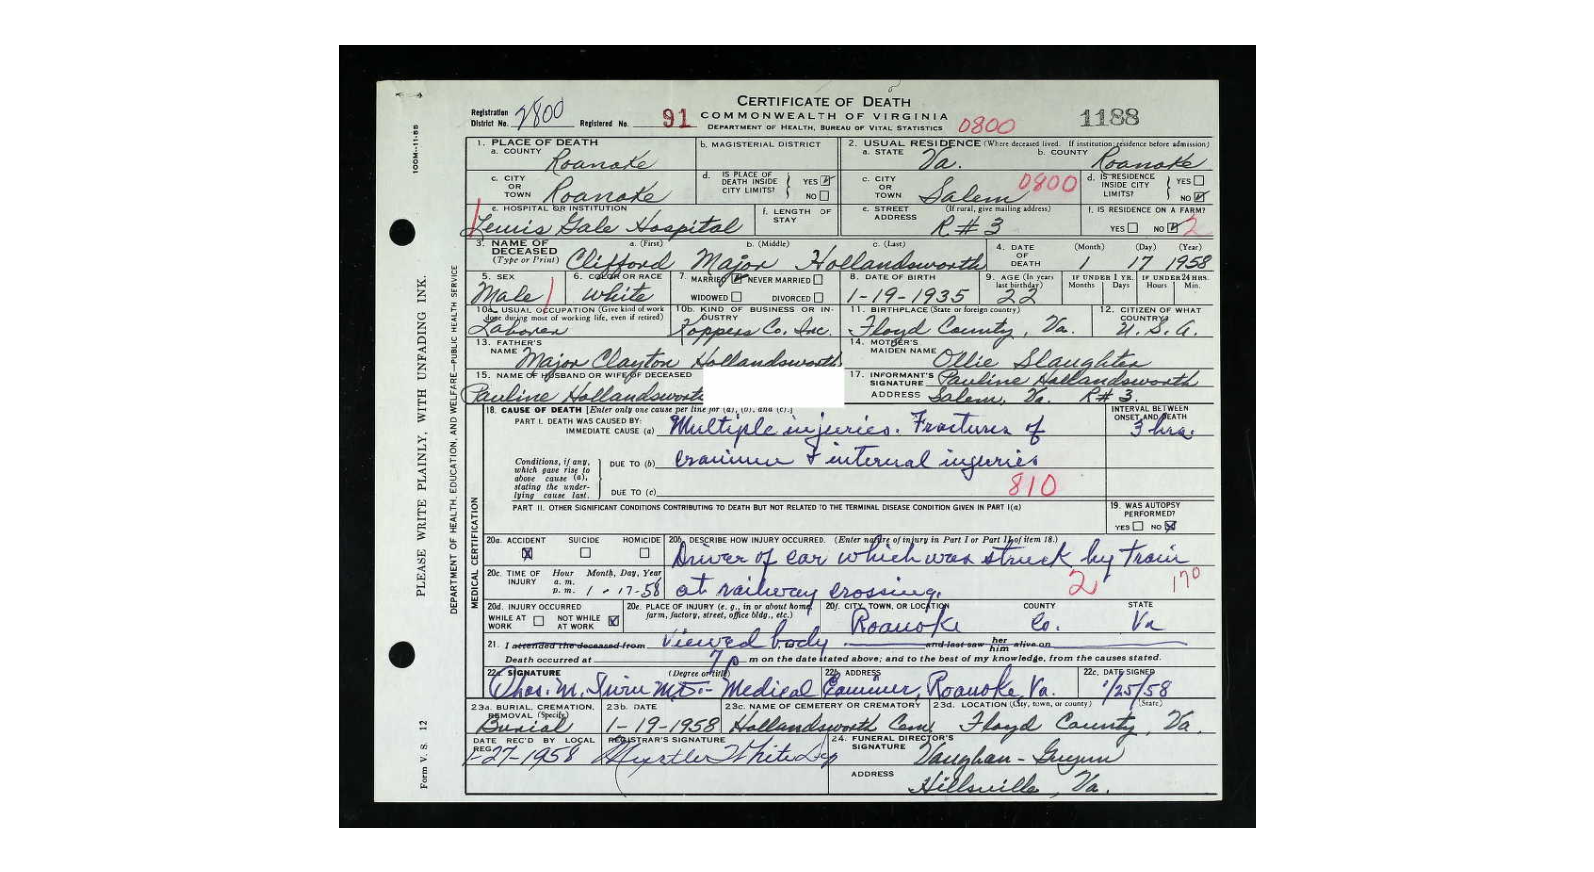 CERTIFICATE OF DEATH
COMMONWEALTH OF VIRGINIA
DEPARTMENT OF HEALTH, BUREAU OF VITAL STATISTICS
Registration District No. 2800 Registered No. 91 0800 1188
1. PLACE OF DEATH
a. COUNTY Roanoke
b. MAGISTERIAL DISTRICT
2. USUAL RESIDENCE (Where deceased lived. If institution: residence before admission)
a. STATE Va. b. COUNTY Roanoke
c. CITY OR TOWN Roanoke
d. IS PLACE OF DEATH INSIDE CITY LIMITS? YES NO
c. CITY OR TOWN Salem 0800
d. IS RESIDENCE INSIDE CITY LIMITS? YES NO
e. HOSPITAL OR INSTITUTION Lewis Gale Hospital
f. LENGTH OF STAY
e. STREET ADDRESS (If rural, give mailing address) R# 3
f. IS RESIDENCE ON A FARM? YES NO 2
3. NAME OF DECEASED (Type or Print)
a. (First) b. (Middle) c. (Last)
Clifford Major Hollandsworth
4. DATE OF DEATH (Month) (Day) (Year)
1 17 1958
5. SEX Male
6. COLOR OR RACE White
7. MARRIED NEVER MARRIED
WIDOWED DIVORCED
8. DATE OF BIRTH 1-19-1935
9. AGE (In years last birthday) 22
IF UNDER 1 YR. Months Days
IF UNDER 24 HRS. Hours Min.
10a. USUAL OCCUPATION (Give kind of work done during most of working life, even if retired) Laborer
10b. KIND OF BUSINESS OR INDUSTRY Koppers Co. Inc.
11. BIRTHPLACE (State or foreign country) Floyd County, Va.
12. CITIZEN OF WHAT COUNTRY? U.S.A.
13. FATHER'S NAME Major Clayton Hollandsworth
14. MOTHER'S MAIDEN NAME Ollie Slaughter
15. NAME OF HUSBAND OR WIFE OF DECEASED
Pauline Hollandsworth
17. INFORMANT'S SIGNATURE Pauline Hollandsworth
ADDRESS Salem, Va. R# 3.
18. CAUSE OF DEATH [Enter only one cause per line for (a), (b), and (c).]
INTERVAL BETWEEN ONSET AND DEATH 3 hrs.
PART I. DEATH WAS CAUSED BY:
IMMEDIATE CAUSE (a) Multiple injuries. Fractures of
Conditions, if any, which gave rise to above cause (a), stating the underlying cause last.
DUE TO (b) cranium & internal injuries
DUE TO (c) 810
PART II. OTHER SIGNIFICANT CONDITIONS CONTRIBUTING TO DEATH BUT NOT RELATED TO THE TERMINAL DISEASE CONDITION GIVEN IN PART I(a)
19. WAS AUTOPSY PERFORMED? YES NO
20a. ACCIDENT SUICIDE HOMICIDE
20b. DESCRIBE HOW INJURY OCCURRED. (Enter nature of injury in Part I or Part II of item 18.)
Driver of car which was struck by train
20c. TIME OF INJURY Hour a. m. p. m. Month, Day, Year 1-17-58
at railway crossing. 2 170
20d. INJURY OCCURRED
WHILE AT WORK NOT WHILE AT WORK
20e. PLACE OF INJURY (e. g., in or about home, farm, factory, street, office bldg., etc.)
20f. CITY, TOWN, OR LOCATION COUNTY STATE
Roanoke Co. Va
21. I attended the deceased from viewed body and last saw her him alive on
Death occurred at 7 p m on the date stated above; and to the best of my knowledge, from the causes stated.
22a. SIGNATURE (Degree or title) Chas. M. Irvin M.D. - Medical Examiner,
22b. ADDRESS Roanoke, Va.
22c. DATE SIGNED 1/25/58
23a. BURIAL, CREMATION, REMOVAL (Specify) Burial
23b. DATE 1-19-1958
23c. NAME OF CEMETERY OR CREMATORY Hollandsworth Cem.
23d. LOCATION (City, town, or county) (State) Floyd County, Va.
DATE REC'D BY LOCAL REG. 1-27-1958
REGISTRAR'S SIGNATURE Myrtle White Dep
24. FUNERAL DIRECTOR'S SIGNATURE Vaughan-Guynn
ADDRESS Hillsville, Va.
100M-11-55
PLEASE WRITE PLAINLY, WITH UNFADING INK.
Form V. S. 12
DEPARTMENT OF HEALTH, EDUCATION, AND WELFARE—PUBLIC HEALTH SERVICE
MEDICAL CERTIFICATION